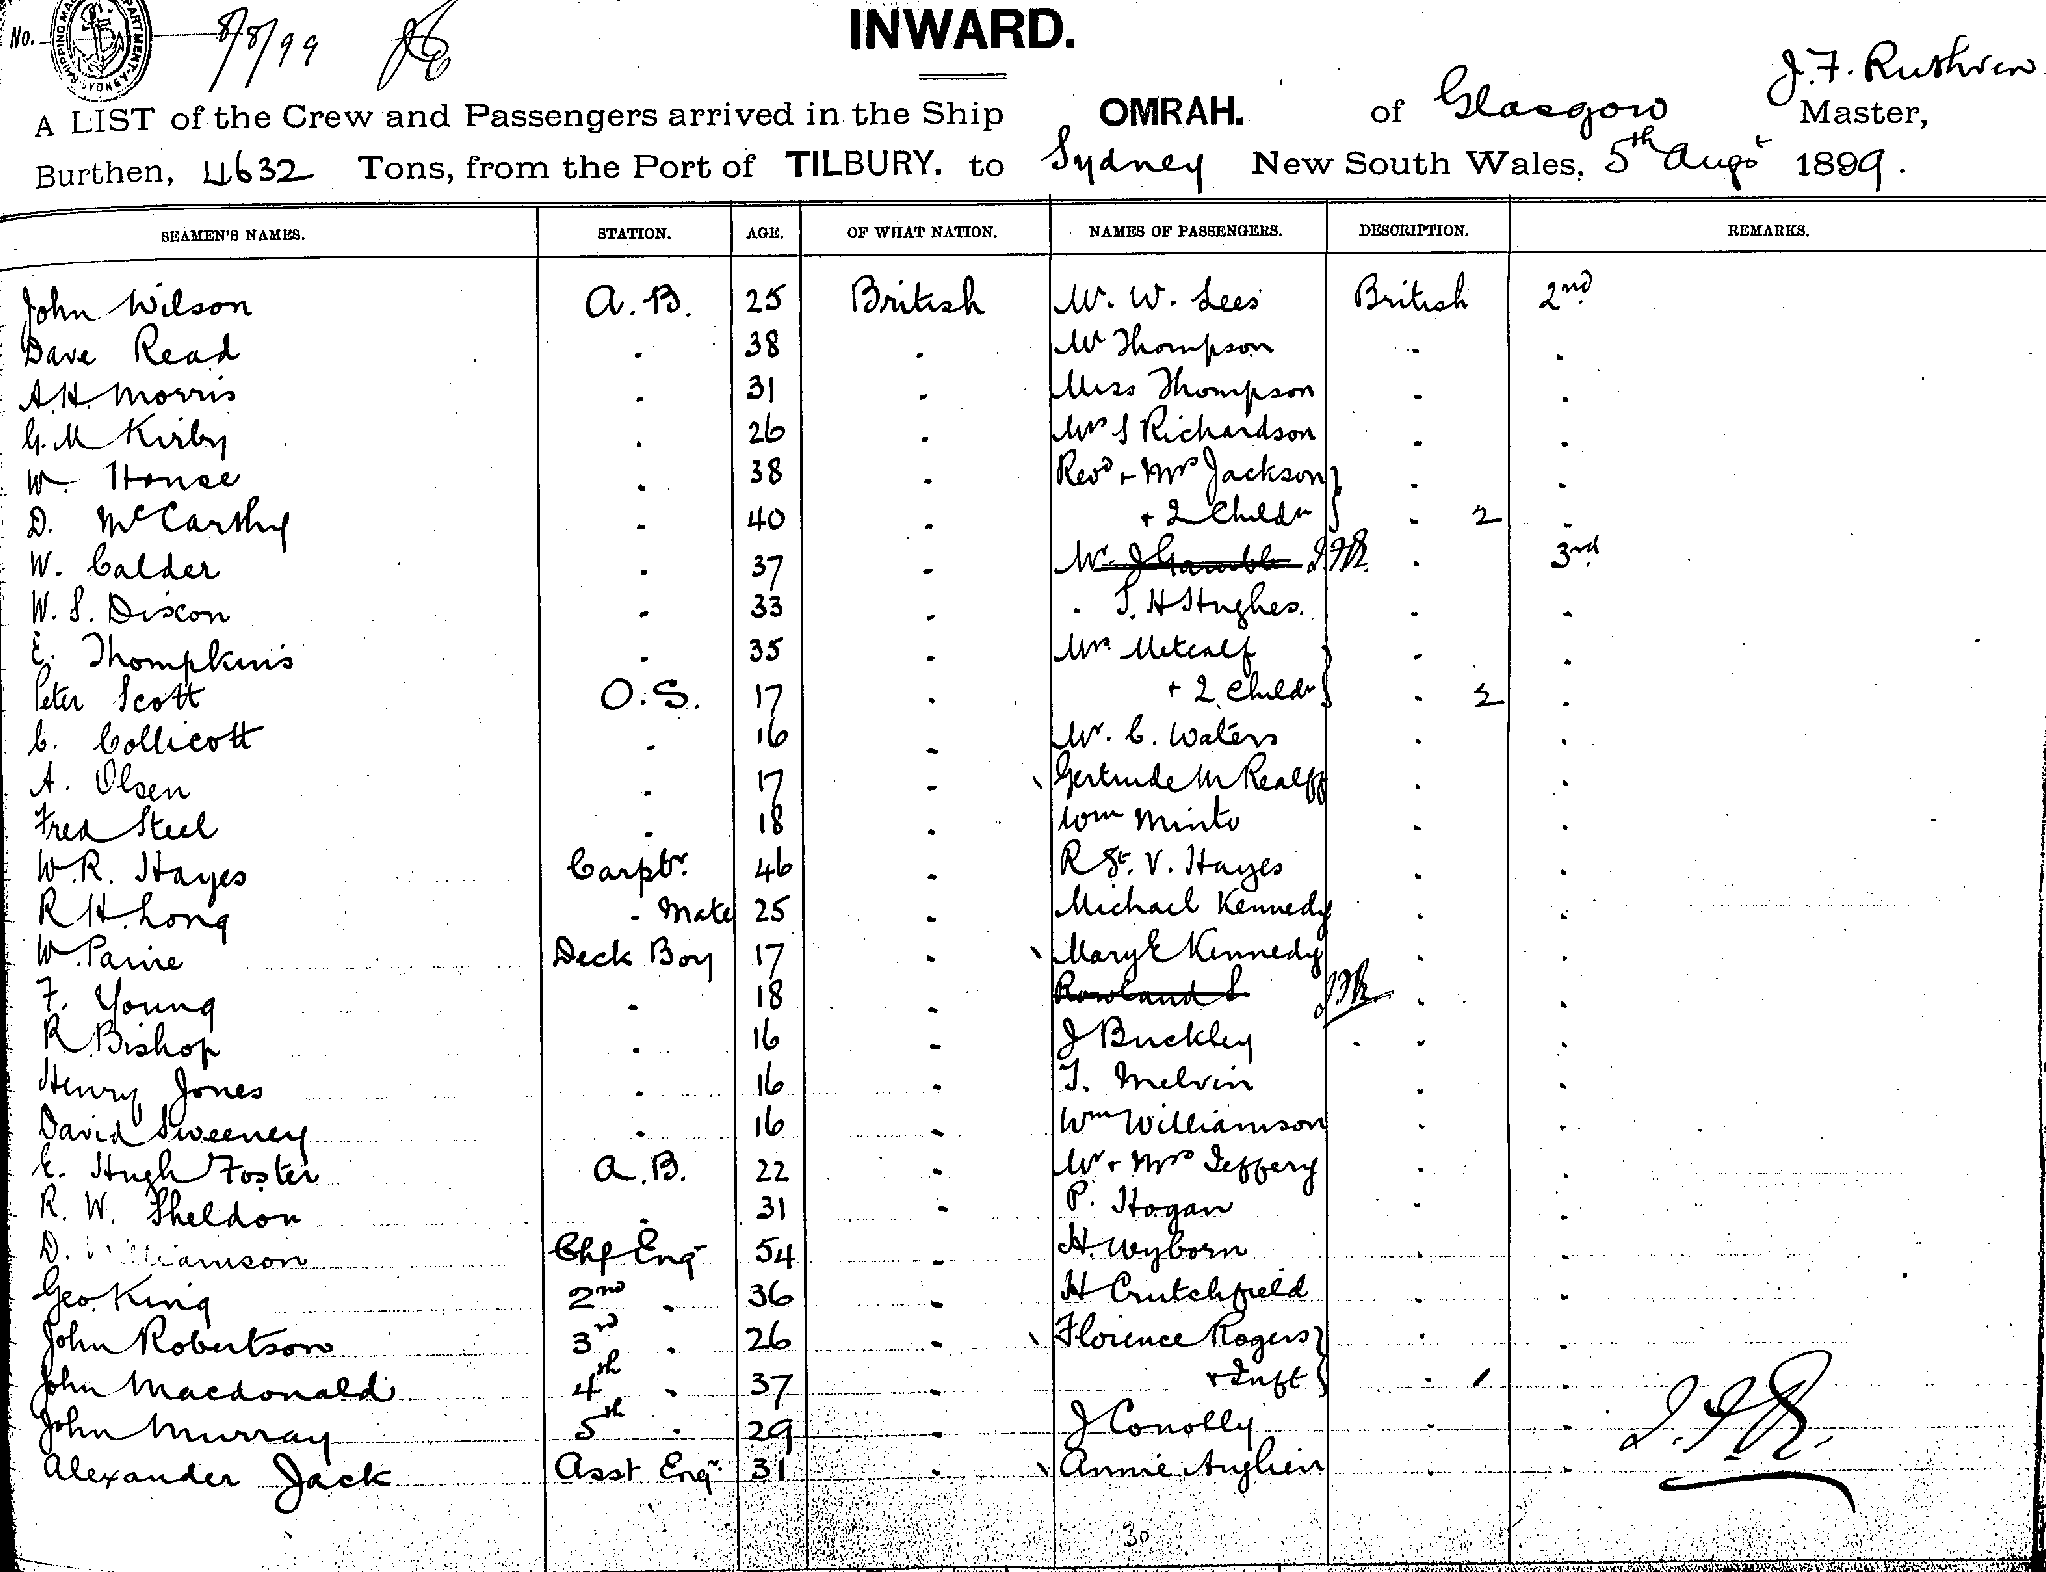 No. 8/8/99
INWARD.
J. F. Ruthven
A LIST of the Crew and Passengers arrived in the Ship OMRAH. of Glasgow Master,
Burthen, 4632 Tons, from the Port of TILBURY. to Sydney New South Wales, 5th Augst 1899.
SEAMEN'S NAMES. STATION. AGE. OF WHAT NATION. NAMES OF PASSENGERS. DESCRIPTION. REMARKS.
John Wilson A.B. 25 British Mr. W. Lees British 2nd
Dave Read " 38 " Mr Thompson " "
A.H. Morris " 31 " Miss Thompson " "
G.M Kirby " 26 " Mrs S Richardson " "
W. House " 38 " Revd + Mrs Jackson } " "
D. McCarthy " 40 " + 2 Childn } " 2 "
W. Calder " 37 " Mr. J Gamble J.F.R. " 3rd
W. S. Dixon " 33 " " T. H Hughes. " "
E. Thompkins " 35 " Mrs Metcalf } " "
Peter Scott O.S. 17 " + 2 Childn } " 2 "
C. Collicott " 16 " Mr. C. Waters " "
A. Olsen " 17 " Gertrude M Realff " "
Fred Steel " 18 " Wm Minto " "
W.R. Hayes Carptr. 46 " R St. V. Hayes " "
R H. Long " Mate 25 " Michael Kennedy " "
W. Paine Deck Boy 17 " Mary E Kennedy " "
F. Young " 18 " Rowland S JFR " "
R. Bishop " 16 " J Buckley " "
Henry Jones " 16 " T. Melvin " "
David Sweeney " 16 " Wm Williamson " "
E. Hugh Foster A.B. 22 " Mr + Mrs Jeffery " "
R. W. Sheldon " 31 " P. Hogan " "
D. Williamson Chf Engr 54 " H. Wyborn " "
Geo. King 2nd " 36 " H Crutchfield " "
John Robertson 3rd " 26 " Florence Rogers } " "
John Macdonald 4th " 37 " + Inft } " 1 "
John Murray 5th " 29 " J Conolly " "
J.F.R.
Alexander Jack Asst Engr. 31 " Annie " "
30